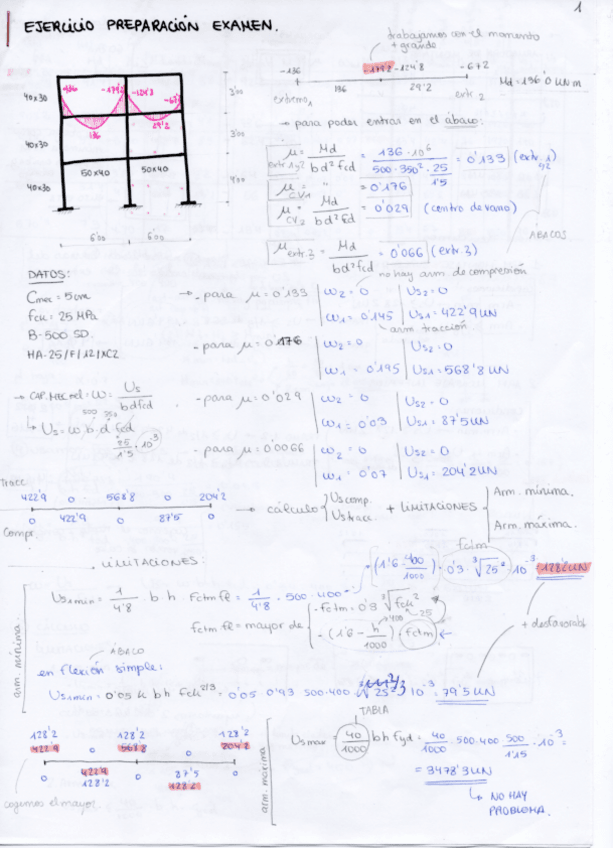 1
EJERCICIO PREPARACIÓN EXAMEN.
trabajamos con el momento
+ grande
-136 -179'2 -124'8 -67'2
136 29'2
Md = 136'0 kN m
extremo 1 extr. 2
→ para poder entrar en el ábaco:
40x30
40x30
40x30
50x40 50x40
136 -179'2 -124'8 -67'2
136 29'2
3'00
3'00
4'00
6'00 6'00
μ extr 1y2 = Md / b d² fcd = 136 · 10⁶ / 500 · 350² · 25/1'5 = 0'133 (extr. 1)
μ CV1 = " = 0'176
μ CV2 = Md / b d² fcd = 0'029 (centro de vano)
μ extr. 3 = Md / b d² fcd = 0'066 (extr. 3)
ÁBACOS
no hay arm de compresión
DATOS:
Cmec = 5 cm
fck = 25 MPa
B-500 SD.
HA-25/F/12/XC2
→ - para μ = 0'133 | ω2 = 0 | Us2 = 0
ω1 = 0'145 | Us1 = 422'9 kN
arm tracción
- para μ = 0'176 | ω2 = 0 | Us2 = 0
ω1 = 0'195 | Us1 = 568'8 kN
→ CAP. MEC red: ω = Us / b d fcd
500 350
↳ Us = ω b d fcd
25/1'5 · 10⁻³
- para μ = 0'029 | ω2 = 0 | Us2 = 0
ω1 = 0'03 | Us1 = 87'5 kN
- para μ = 0'0066 | ω2 = 0 | Us2 = 0
ω1 = 0'07 | Us1 = 204'2 kN
Tracc
422'9 0 568'8 0 204'2
0 422'9 0 87'5 0
Compr.
→ cálculo Us comp. Us tracc. + LIMITACIONES Arm. mínima.
Arm. máxima.
LIMITACIONES:
fctm
= (1'6 - 400/1000) · 0'3 · ³√25² · 10⁻³ = 128'2 kN
arm. mínima.
Us1min = 1/4'8 b h fctm fl = 1/4'8 · 500 · 400
fctm fl = mayor de
- fctm = 0'3 ³√fck²
25
- (1'6 - h/1000) · fctm
400
+ desfavorabl
ÁBACO
en flexión simple:
Us1min = 0'05 k b h fck^2/3 = 0'05 · 0'93 · 500 · 400 · ³√25² · 10⁻³ = 79'5 kN
TABLA
128'2 128'2 128'2
422'9 0 568'8 0 204'2
0 422'9 0 87'5 0
128'2 128'2
cogemos el mayor
arm. máxima
Usmax = 40/1000 b h fyd = 40/1000 · 500 · 400 · 500/1'15 · 10⁻³ =
= 3478'3 kN
↳ NO HAY
PROBLEMA.